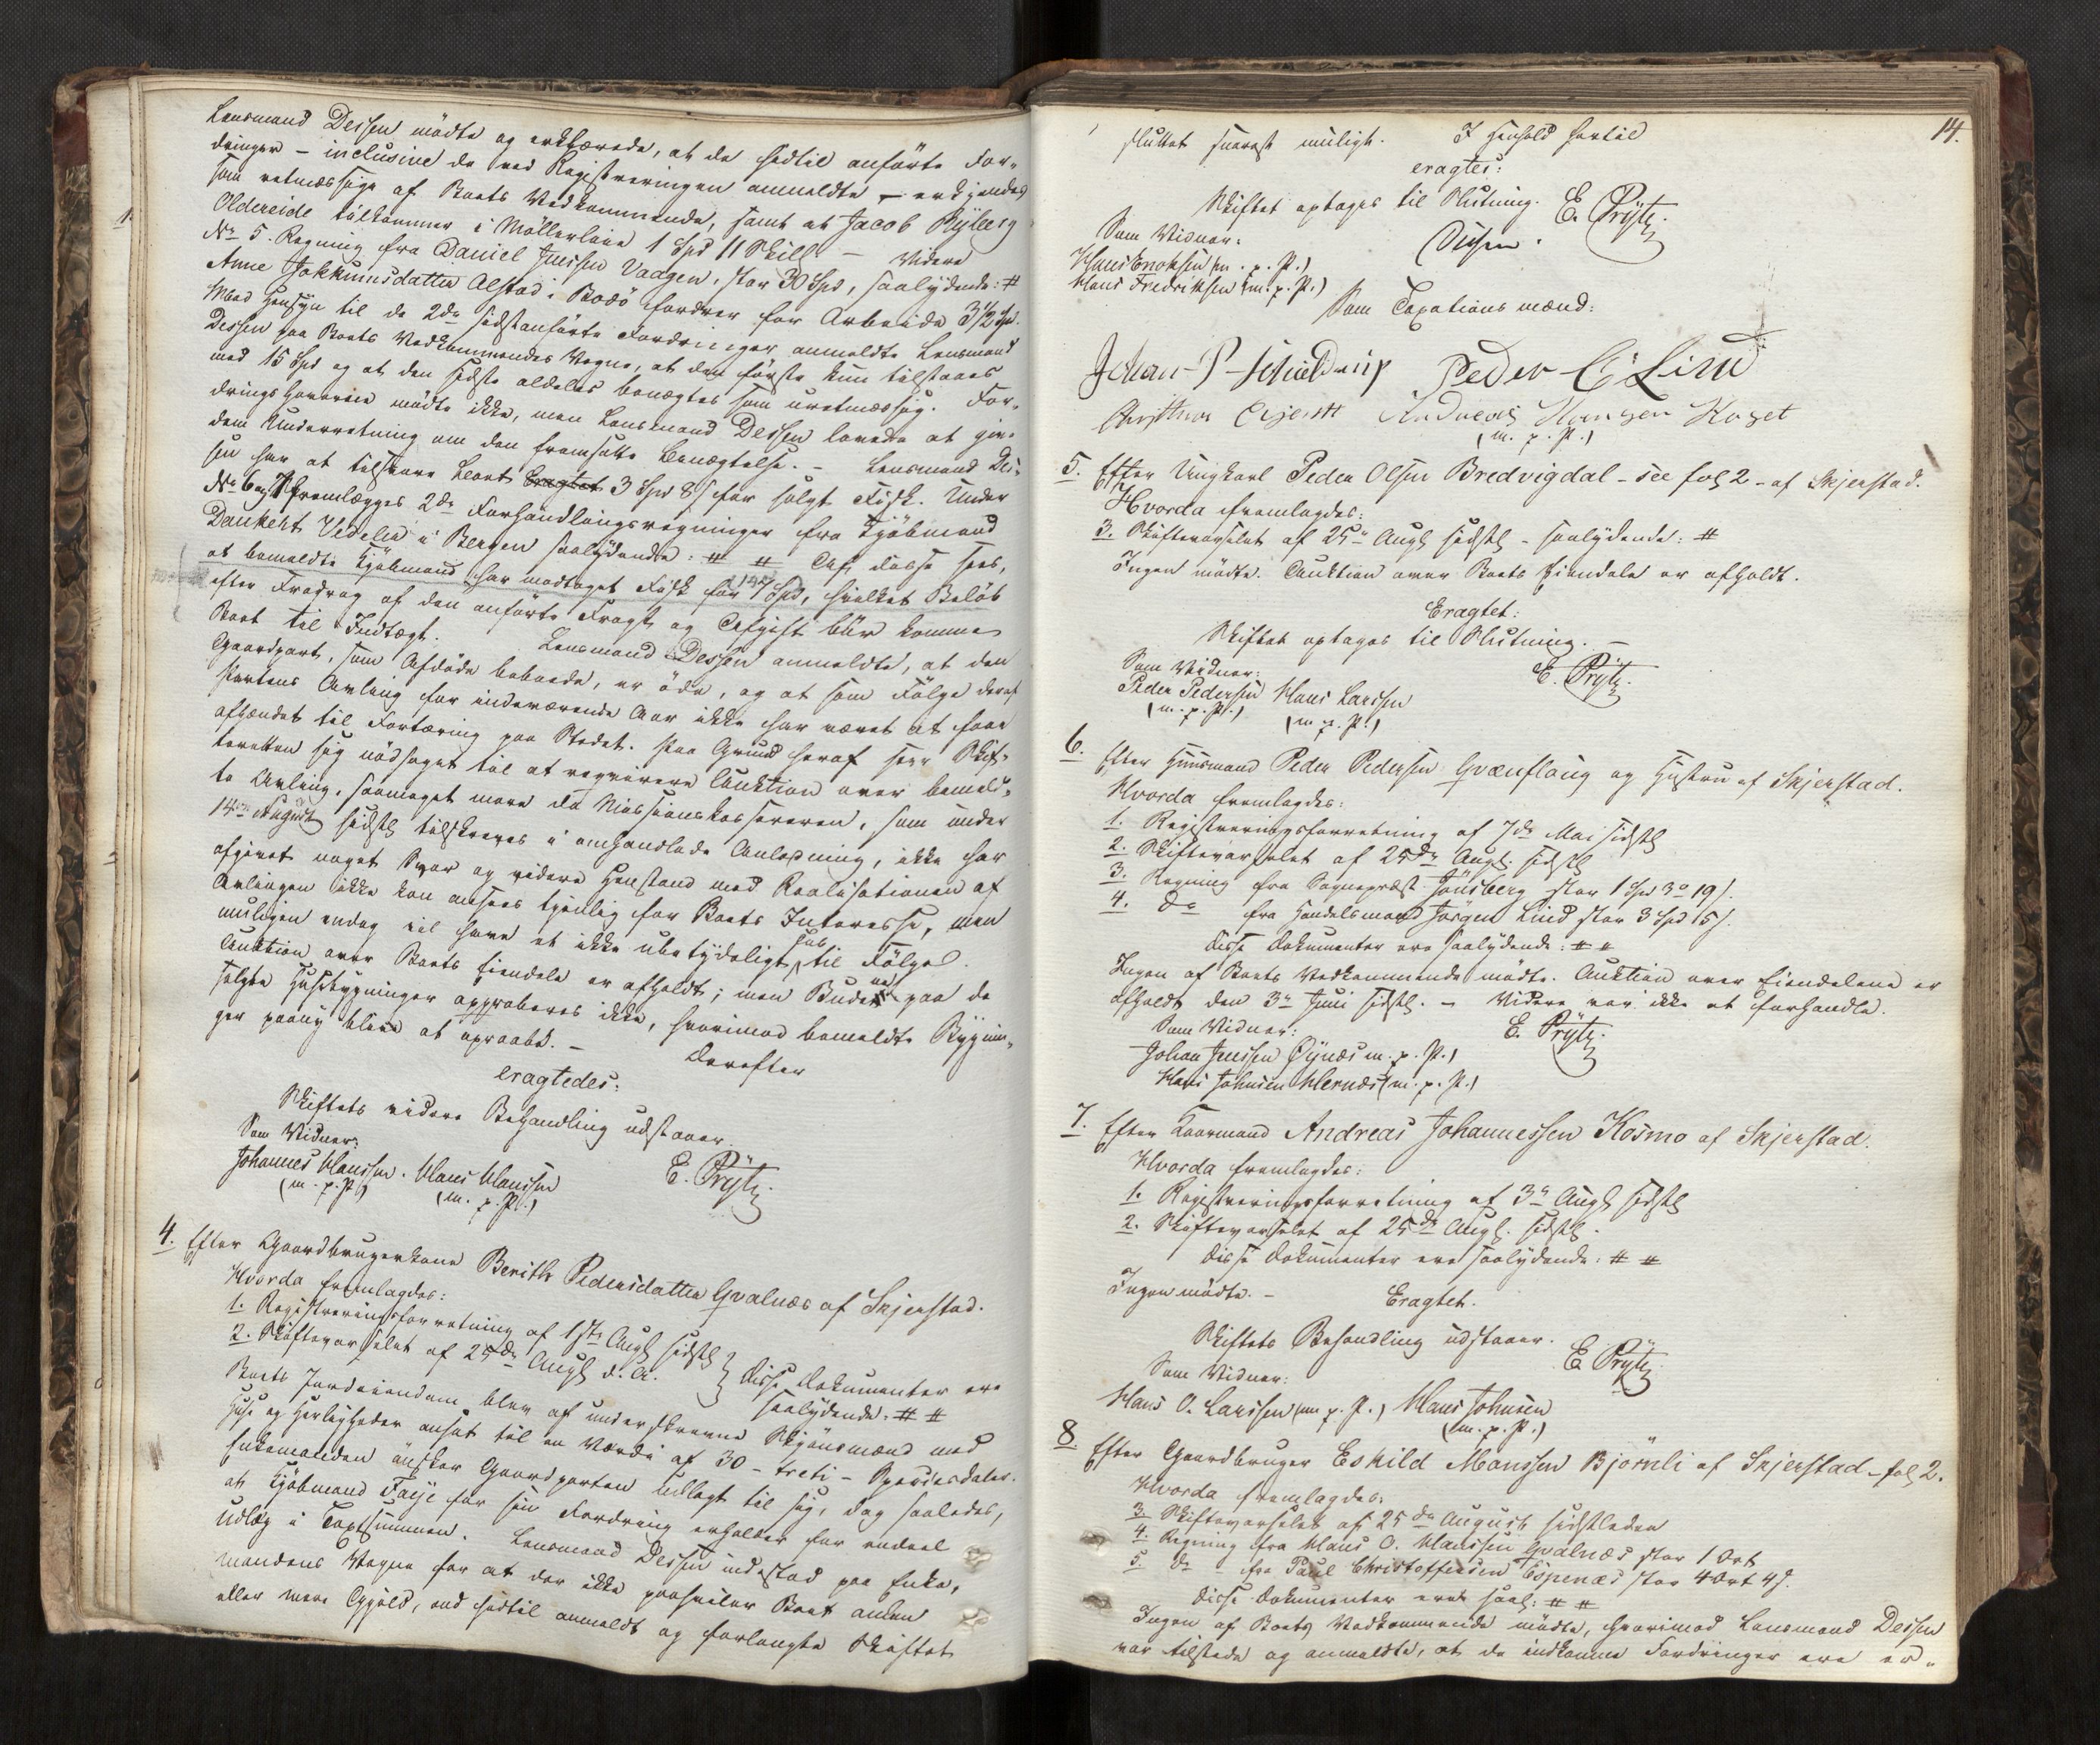 Lensmand Dessen mödte og erklærede, at de hidtil anförte For-
dringer – inclusive de ved Registreringen anmeldte – erkjendes
som retmæssige af Boets Vedkommende, samt at Jacob Rijberg
Oldereide tilkommer i Möllerleie 1 Spd 11 Skill. – Videre
No 5. Regning fra Daniel Jenssen Vaagen, stor 30 Spd, saalydende: #
Anne Jokkumsdatter Alstad i Bodö fordrer for Arbeide 3 1/2 Spd.
Med Hensyn til de 2de sidstanförte Fordringer anmeldte Lensmand
Dessen paa Boets Vedkommendes Vegne, at den förste kun tilstaaes
med 15 Spd og at den sidste aldeles benægtes som uretmæssig. For-
drings Haverne mödte ikke, men Lensmand Dessen lovede at give
dem Underretning om den fremsatte Benægtelse. – Lensmand Des-
sen har at tilsvare Boet 3 Spd 8 s for solgt Fisk. Under
No 6 og 7 fremlægges 2de Forhandlingsregninger fra Kjöbmand
Dankert Vedeler i Bergen saalydende: # # Af disse sees,
at bemeldte Kjöbmand har modtaget Fisk for Spd, hvilket Belöb
efter Fradrag af den anförte Fragt og Afgift bür komme
Boet til Indtægt. Lensmand Dessen anmeldte, at den
Gaardpart, som Afdöde beboede, er öde, og at som Fölge deraf
Partens Avling for indeværende Aar ikke har været at faae
afhændet til Fortæring paa Stedet. Paa Grund heraf seer Skif-
teretten sig nödsaget til at reqvirere Auktion over bemeld-
te Avling, saameget mere da Missionskassereren, som under
14de August sidstl tilskreves i omhandlede Anledning, ikke har
afgivet noget Svar og videre Henstand med Realisationen af
Avlingen ikke kan ansees tjenlig for Boets Interesse, men
muligen endog vil have et ikke ubetydeligt Tab til Fölge.
Auktion over Boets Eiendele er afholdt; men Budene paa de
solgte Husebygninger approberes ikke, hvorimod bemeldte Bygnin-
ger paany blive at opraabe. – Derefter
eragtedes:
Skiftets videre Behandling udstaaer.
Som Vidner:
Johannes Hanssen. Hans Hanssen E. Prÿtz.
(m. p. P.) (m. p. P.)
4. Efter Gaardbrugerkone Berith Pedersdatter Gvalnæs af Skjerstad.
Hvorda fremlagdes:
1. Registreringsforretning af 1ste Augt sidstl
2. Skiftevarselet af 25de Augt d. A. } Disse Dokumenter ere
saalydende: # #
Boets Jordeiendom blev af underskrevne Skjönsmænd med
Huse og Herligheder ansat til en Værdi af 30 – treti – Speciesdaler.
Enkemanden önsker Gaardparten udlagt til sig, dog saaledes,
at Kjöbmand Faeje for sin Fordring erholder for endeel
Udlæg i Taxtsummen. Lensmand Dessen indestod paa Enke-
mandens Vegne for at der ikke paahviler Boet anden
eller mere Gjæld, end hidtil anmeldt og forlangte Skiftet
14.
sluttet snarest muligt. I Henhold hertil
eragtes:
Skiftet optages til Slutning. E. Prÿtz.
Som Vidner: Dessen.
Hans Enoksen (m. p. P.)
Hans Fredriksen (m. p. P.)
Som Taxationsmænd:
Johan P Schieldrup Peder C Lind
Andreas Hansen Koset
(m. p. P.)
5. Efter Ungkarl Peder Olsen Bredvigdal – see fol 2 – af Skjerstad.
Hvorda fremlagdes:
3. Skiftevarselet af 25de Augt sidstl – saalydende: #
Ingen mödte. Auktion over Boets Eiendele er afholdt.
Eragtet:
Skiftet optages til Slutning. –
Som Vidner: E. Prÿtz.
Peder Pedersen Hans Larssen
(m. p. P.) (m. p. P.)
6. Efter Huusmand Peder Pedersen Grænflaug og Hustru af Skjerstad.
Hvorda fremlagdes:
1. Registreringsforretning af 7de Mai sidstl
2. Skiftevarselet af 25de Augt. sidstl
3. Regning fra Sognepræst Jönsberg stor 1 Spd 3 o 19 s.
4. Do fra Handelsmand Jörgen Lind stor 3 Spd 15 s.
Disse Dokumenter ere saalydende: # #
Ingen af Boets Vedkommende mödte. Auktion over Eiendelene er
afholdt den 3de Juni sidstl. – Videre var ikke at forhandle.
Som Vidner: E. Prÿtz.
Johan Jenssen Öynæs (m. p. P.)
Hans Johnsen Hernæs (m. p. P.)
7. Efter Kaarmand Andreas Johannessen Kosmo af Skjerstad.
Hvorda fremlagdes:
1. Registreringsforretning af 3de Augt sidstl
2. Skiftevarselet af 25de Augt. sidstl.
Disse Dokumenter ere saalydende: # #
Ingen mödte. – Eragtet.
Skiftets Behandling udstaaer.
Som Vidner: E Prÿtz
Hans O. Larssen (m. p. P.) Hans Johnsen
(m. p. P.)
8. Efter Gaardbruger Eskild Monssen Björnli af Skjerstad – fol 2.
Hvorda fremlagdes:
3. Skiftevarselet af 25de August sidstleden
4. Regning fra Hans O. Hanssen Gvalnæs stor 1 Ort
5. Do – fra Paul Christoffersen Espenæs stor 4 Ort 4 s.
Disse Dokumenter ere saal: # #
Ingen af Boets Vedkommende mödte, hvorimod Lensmand Dessen
var tilstede og anmeldte, at de indkomne Fordringer ere er-